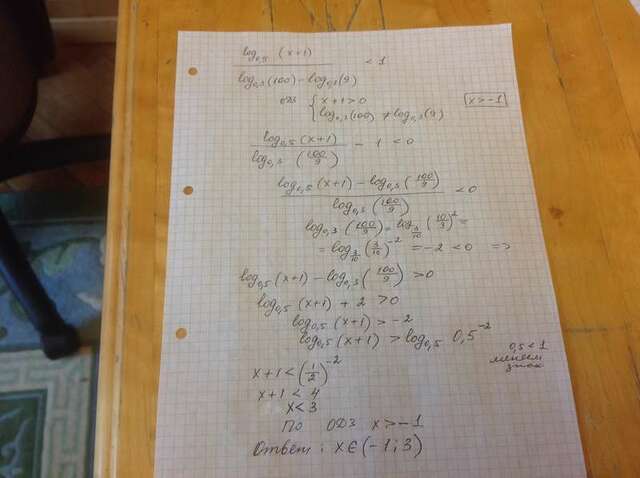 log₀,₅ (x+1)
/ log₀,₃(100) − log₀,₃(9) < 1
ОДЗ { x+1>0
log₀,₃(100) ≠ log₀,₃(9)
x>−1
log₀,₅(x+1) / log₀,₃ (100/9) − 1 < 0
log₀,₅(x+1) − log₀,₃(100/9) / log₀,₃(100/9) < 0
log₀,₃(100/9) = log_{3/10} (10/3)² =
= log_{3/10} (3/10)⁻² = −2 < 0 =>
log₀,₅(x+1) − log₀,₃(100/9) > 0
log₀,₅(x+1) + 2 > 0
log₀,₅(x+1) > −2
log₀,₅(x+1) > log₀,₅ 0,5⁻²
0,5 < 1
меняем
знак
x+1 < (1/2)⁻²
x+1 < 4
x < 3
По ОДЗ x > −1
Ответ: x ∈ (−1; 3)